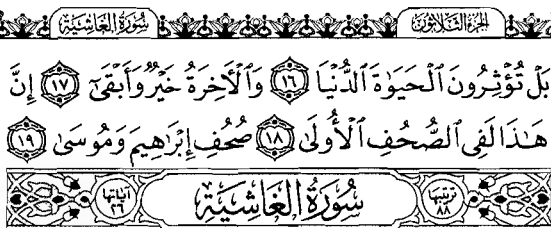 الجزء الثلاثون سورة الغاشية
بَلْ تُؤْثِرُونَ ٱلْحَيَوٰةَ ٱلدُّنْيَا ١٦ وَٱلْأَخِرَةُ خَيْرٌ وَأَبْقَىٰٓ ١٧ إِنَّ
هَـٰذَا لَفِى ٱلصُّحُفِ ٱلْأُولَىٰ ١٨ صُحُفِ إِبْرَٰهِيمَ وَمُوسَىٰ ١٩
ترتيبها ٨٨ سُورَةُ الْغَاشِيَةِ آياتها ٢٦